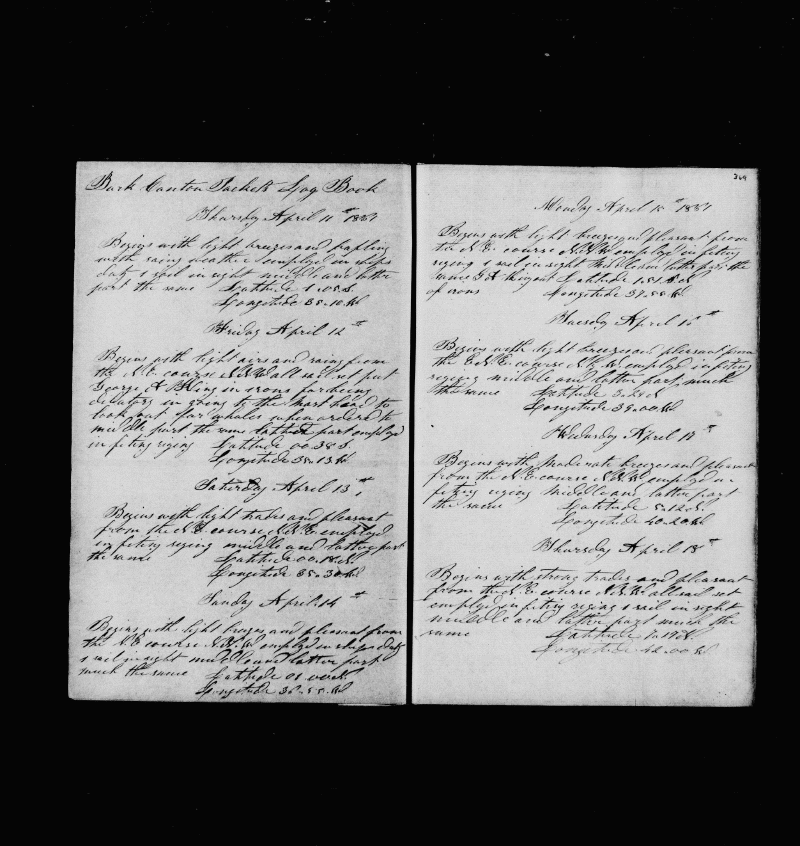 Bark Canton Packets Log Book
Thursday April 11th 1861
Begins with light breezes and
with rainy weather employed in ships
duty 1 sail in sight middle and latter
part the same Latitude 1.05 S.
Longitude 35.10 W
Friday April 12th
Begins with light airs and rainy from
the N.E. course all sail set put
George A Thing in irons for being
in going to the mast head to
look out for whales when ordered to
middle part the same latter part employed
in fiting riging Latitude 00.38 S.
Longitude 35.13 W
Saturday April 13th
Begins with light trades and pleasant
from the N.E. course employed
in fiting riging middle and latter part
the same Latitude 00.18 N.
Longitude 35.30 W
Sunday April 14th
Begins with light breezes and pleasant from
the N.E. course N.W. employed in ships duty
1 sail in sight middle and latter part
much the same Latitude 01.00 N.
Longitude 36.55 W
369
Monday April 15th 1861
Begins with light breezes and pleasant from
the N.E. course employed in fiting
riging 1 sail in sight middle and latter part the
same G A thing out
of irons Latitude 1.51 N
Longitude 37.55 W
Tuesday April 16th
Begins with light breezes and pleasant from
the N.E. course N.W. employed in fiting
riging middle and latter part much
the same Latitude N
Longitude 39.00 W
Wednesday April 17th
Begins with moderate breezes and pleasant
from the N.E. course employed in
fiting riging Middle and latter part
the same Latitude 5.12 N.
Longitude 40.20 W
Thursday April 18th
Begins with strong trades and pleasant
from the N.E. course all sail set
employed in fiting riging 1 sail in sight
middle and latter part much the
same Latitude 7.17 N.
Longitude 42.00 W